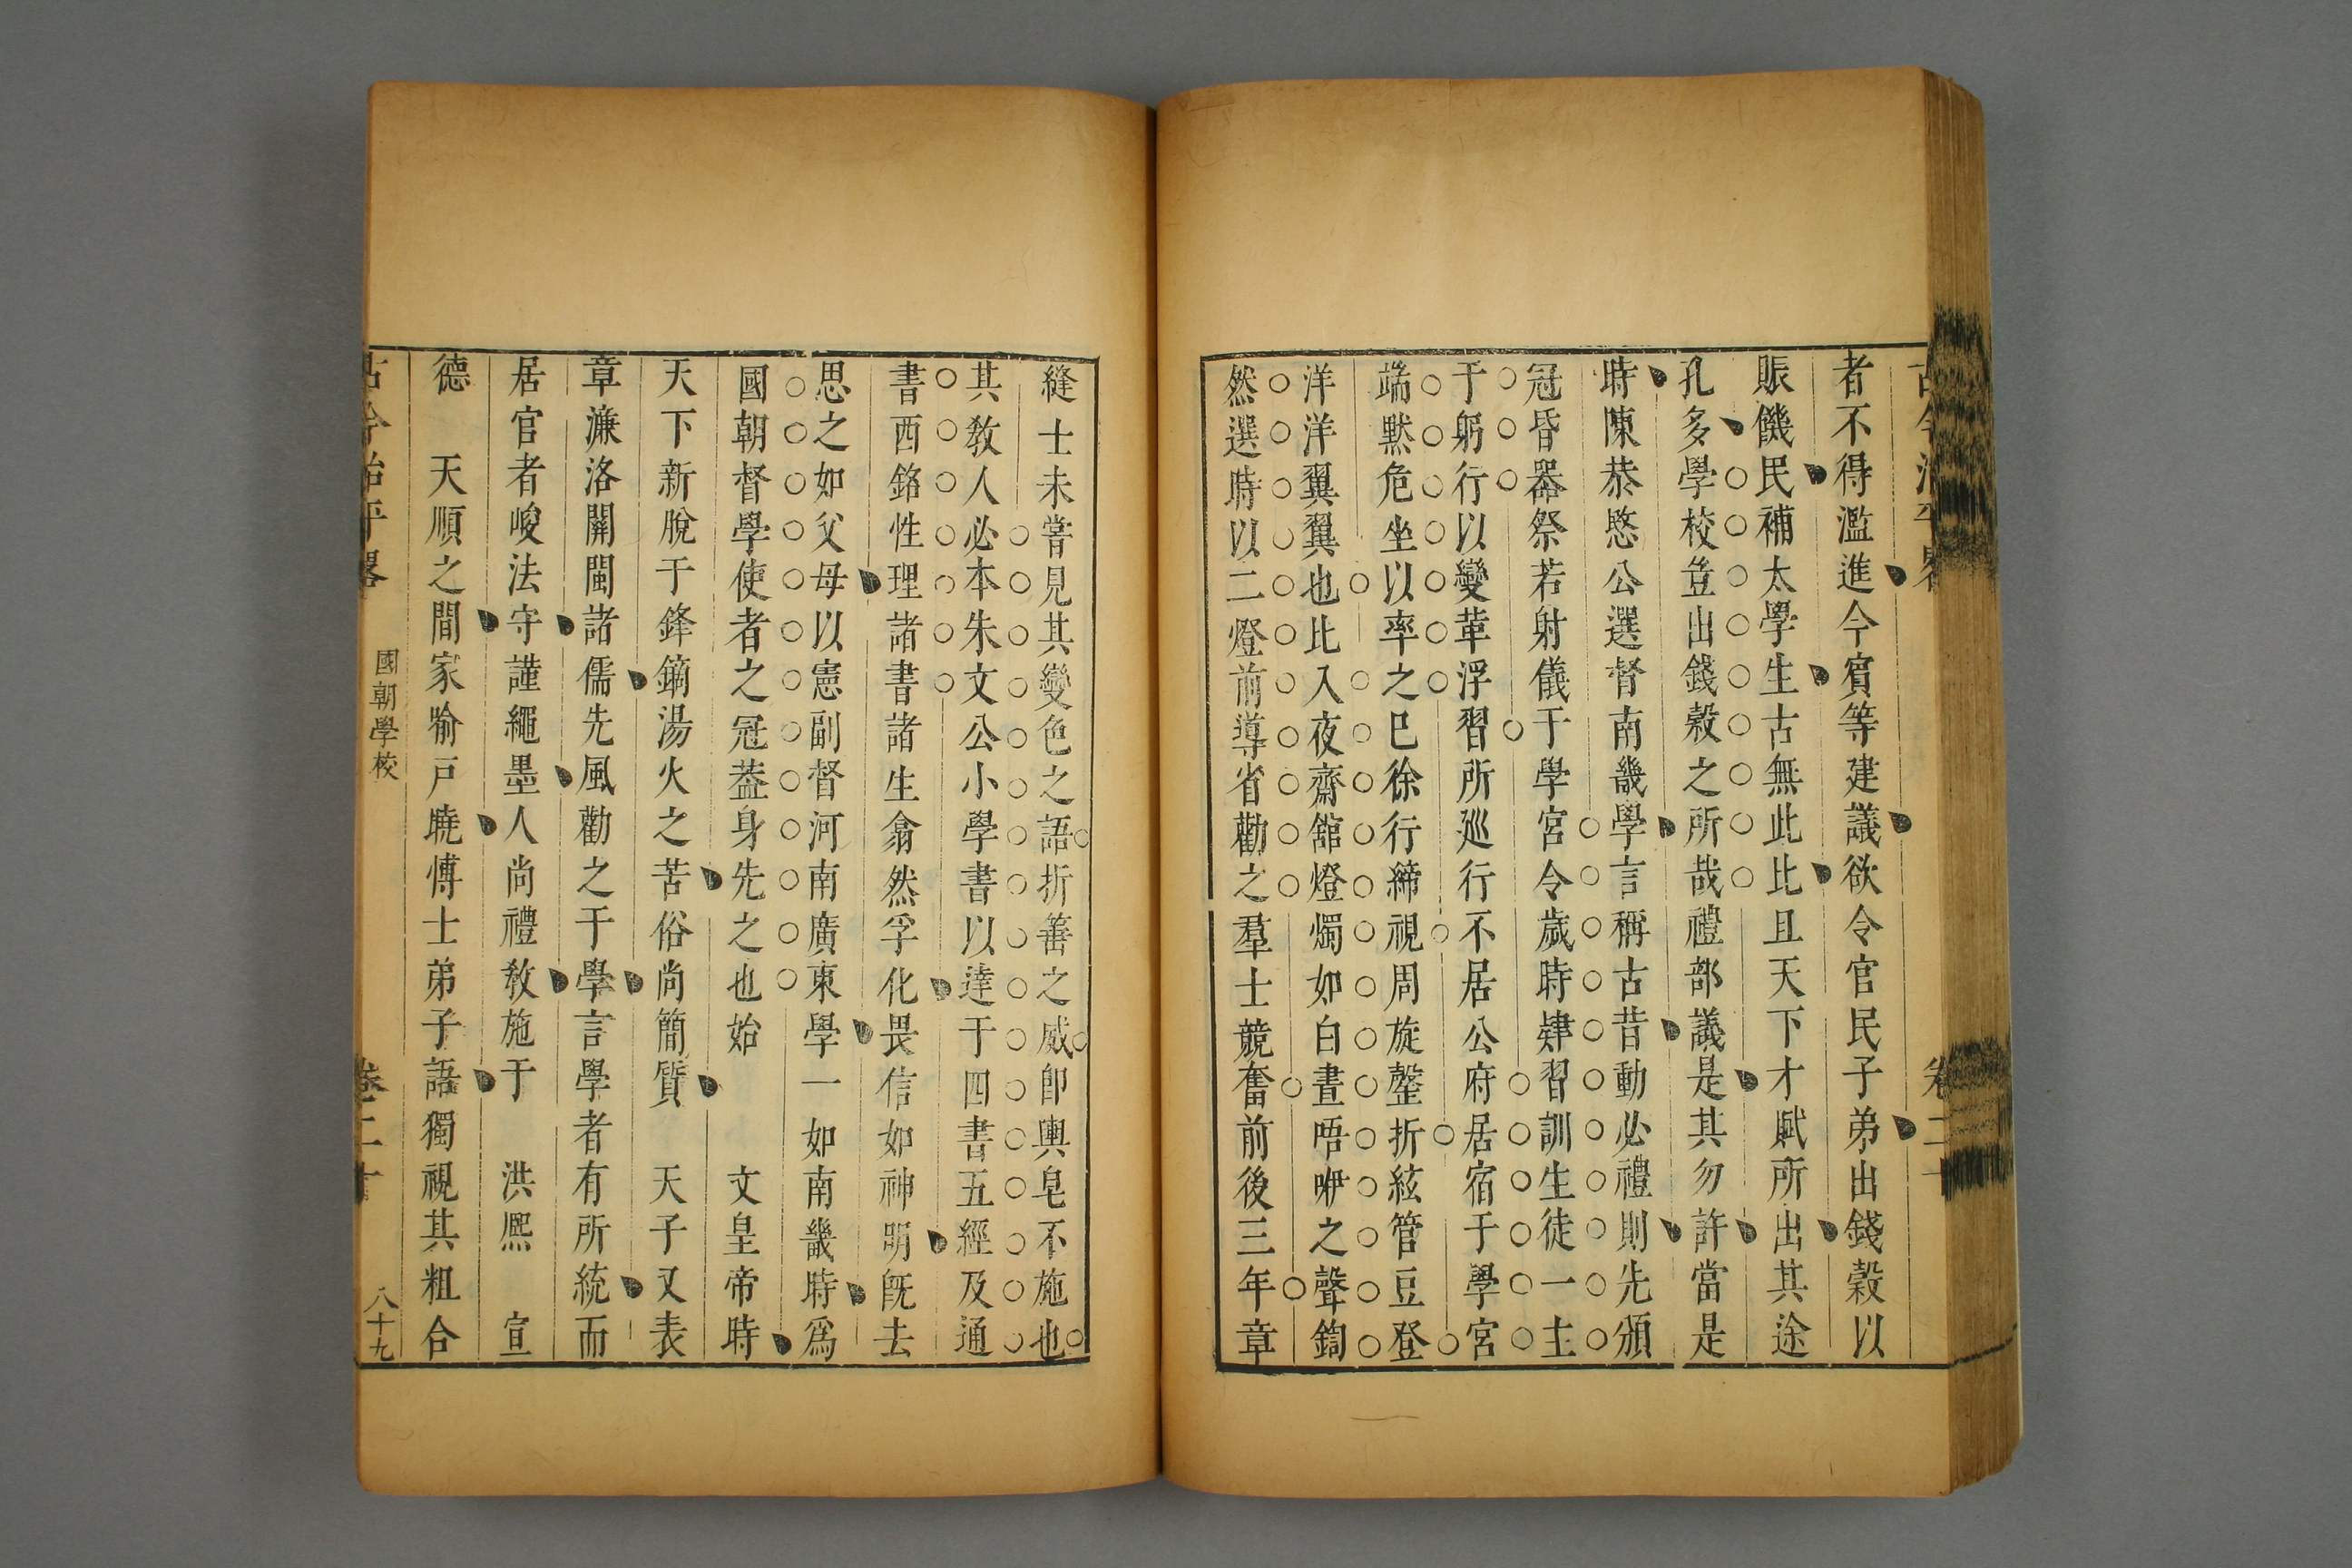 古今治平畧
卷二十
者不得濫進今賔等建議欲令官民子弟出錢穀以
賑饑民補太學生古無此比且天下才賦所出其途
孔多學校豈出錢穀之所哉禮部議是其勿許當是
時陳恭愍公選督南畿學言稱古昔動必禮則先頒
冠昏器祭若射儀于學宮令歲時肄習訓生徒一主
于躬行以變革浮習所廵行不居公府居宿于學宮
端黙危坐以率之巳徐行締視周旋罄折絃管豆登
洋洋翼翼也比入夜齋舘燈燭如白晝唔咿之聲鍧
然選時以二燈前導省勸之羣士競奮前後三年章
縫士未嘗見其變色之語折善之威卽輿皂不施也
其敎人必本朱文公小學書以達于四書五經及通
書西銘性理諸書諸生翕然孚化畏信如神明旣去
思之如父母以憲副督河南廣東學一如南畿時爲
國朝督學使者之冠葢身先之也始　文皇帝時
天下新脫于鋒鏑湯火之苦俗尚簡質　天子又表
章濂洛關閩諸儒先風勸之于學言學者有所統而
居官者峻法守謹繩墨人尚禮敎施于　洪熈　宣
德　天順之間家喻戸曉博士弟子語獨視其粗合
古今治平畧
國朝學校
卷二十
八十九